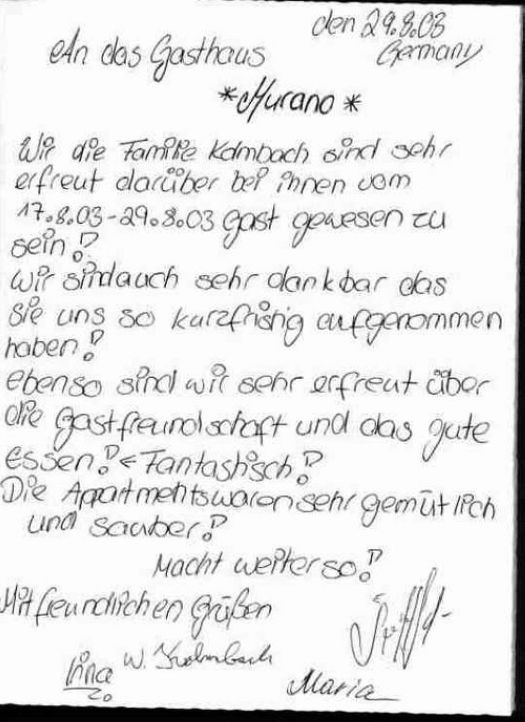 den 29.8.03
Germany
An das Gasthaus
*Murano*
Wir die Familie Kambach sind sehr
erfreut darüber bei ihnen vom
17.8.03-29.8.03 gast gewesen zu
sein!
Wir sind auch sehr dankbar das
Sie uns so kurzfristig aufgenommen
haben!
ebenso sind wir sehr erfreut über
die gastfreundschaft und das gute
essen! ← Fantastisch!
Die Appartments waren sehr gemütlich
und sauber!
Macht weiter so!
Mit freundlichen Grüßen
W.
Maria